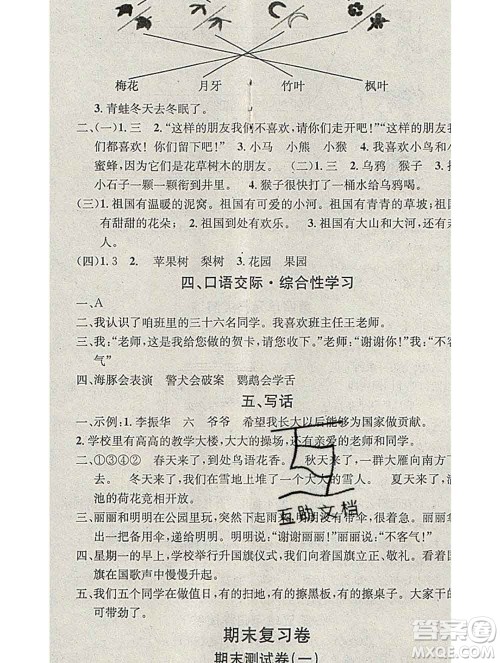 梅花 月牙 竹叶 枫叶
3. 青蛙冬天去冬眠了。
二、(一)1. 三 2. “这样的朋友我们不喜欢,请你们走开吧!” “这样的朋友我
们都喜欢!请你们留下来吧!” 3. 小马 小熊 小猴 (二)1. 三 2.
蜜蜂,它们是花草树木的朋友。 (二)1. 三 2. 乌鸦 猴子 3. 乌鸦把
小石子一颗一颗衔到井里。 4. 猴子用桶打了一桶水给乌鸦喝。
(三)1. 祖国有温暖的泥窝。祖国有甜甜的花朵。 2. 祖国有青青的草坡。祖国
有甜甜的花朵; 2. 祖国到处有欢乐。 3. 祖国有大山和大河,有我们
共有。
(四)1. 3 2. 苹果树 梨树 3. 花园 果园
四、口语交际·综合性学习
一、A
二、我认识了咱班里的三十六名同学。我喜欢班主任王老师。
三、我:“老师,这是送您的贺卡,祝您节日快乐!” 老师:“谢谢你!” 我:“不客
气”
四、海豚会表演 警犬会破案 鹦鹉会学舌
五、写话
一、示例:1. 李振华 六 爷爷 希望我长大以后能够为国家做贡献。
2. 学校里有高高的教学大楼,大大的操场,还有亲爱的老师和同学。
二、①③④② 春天来了,到处鸟语花香。 秋天来了,一群大雁往南飞。
冬天来了,我和朋友们在雪地上堆了一个大大的雪人。 夏天来了,满
池的荷花竞相开放。
三、丽丽和明明在公园里玩,明明跑着跑着,鞋带开了,摔伤了。丽丽拿
出一条备用的鞋带,帮明明系上。明明说:“谢谢丽丽!” 丽丽说:“不用谢!”
四、星期一的早上,学校举行升国旗仪式,我们对着国旗立正、敬礼。国旗
在国歌声中慢慢升起。
五、我们五个同学在打扫教室,有的扫地,有的擦黑板,有的擦桌子。大家干的
互助文档
期末复习卷
期末测试卷(一)
MXQE.COM